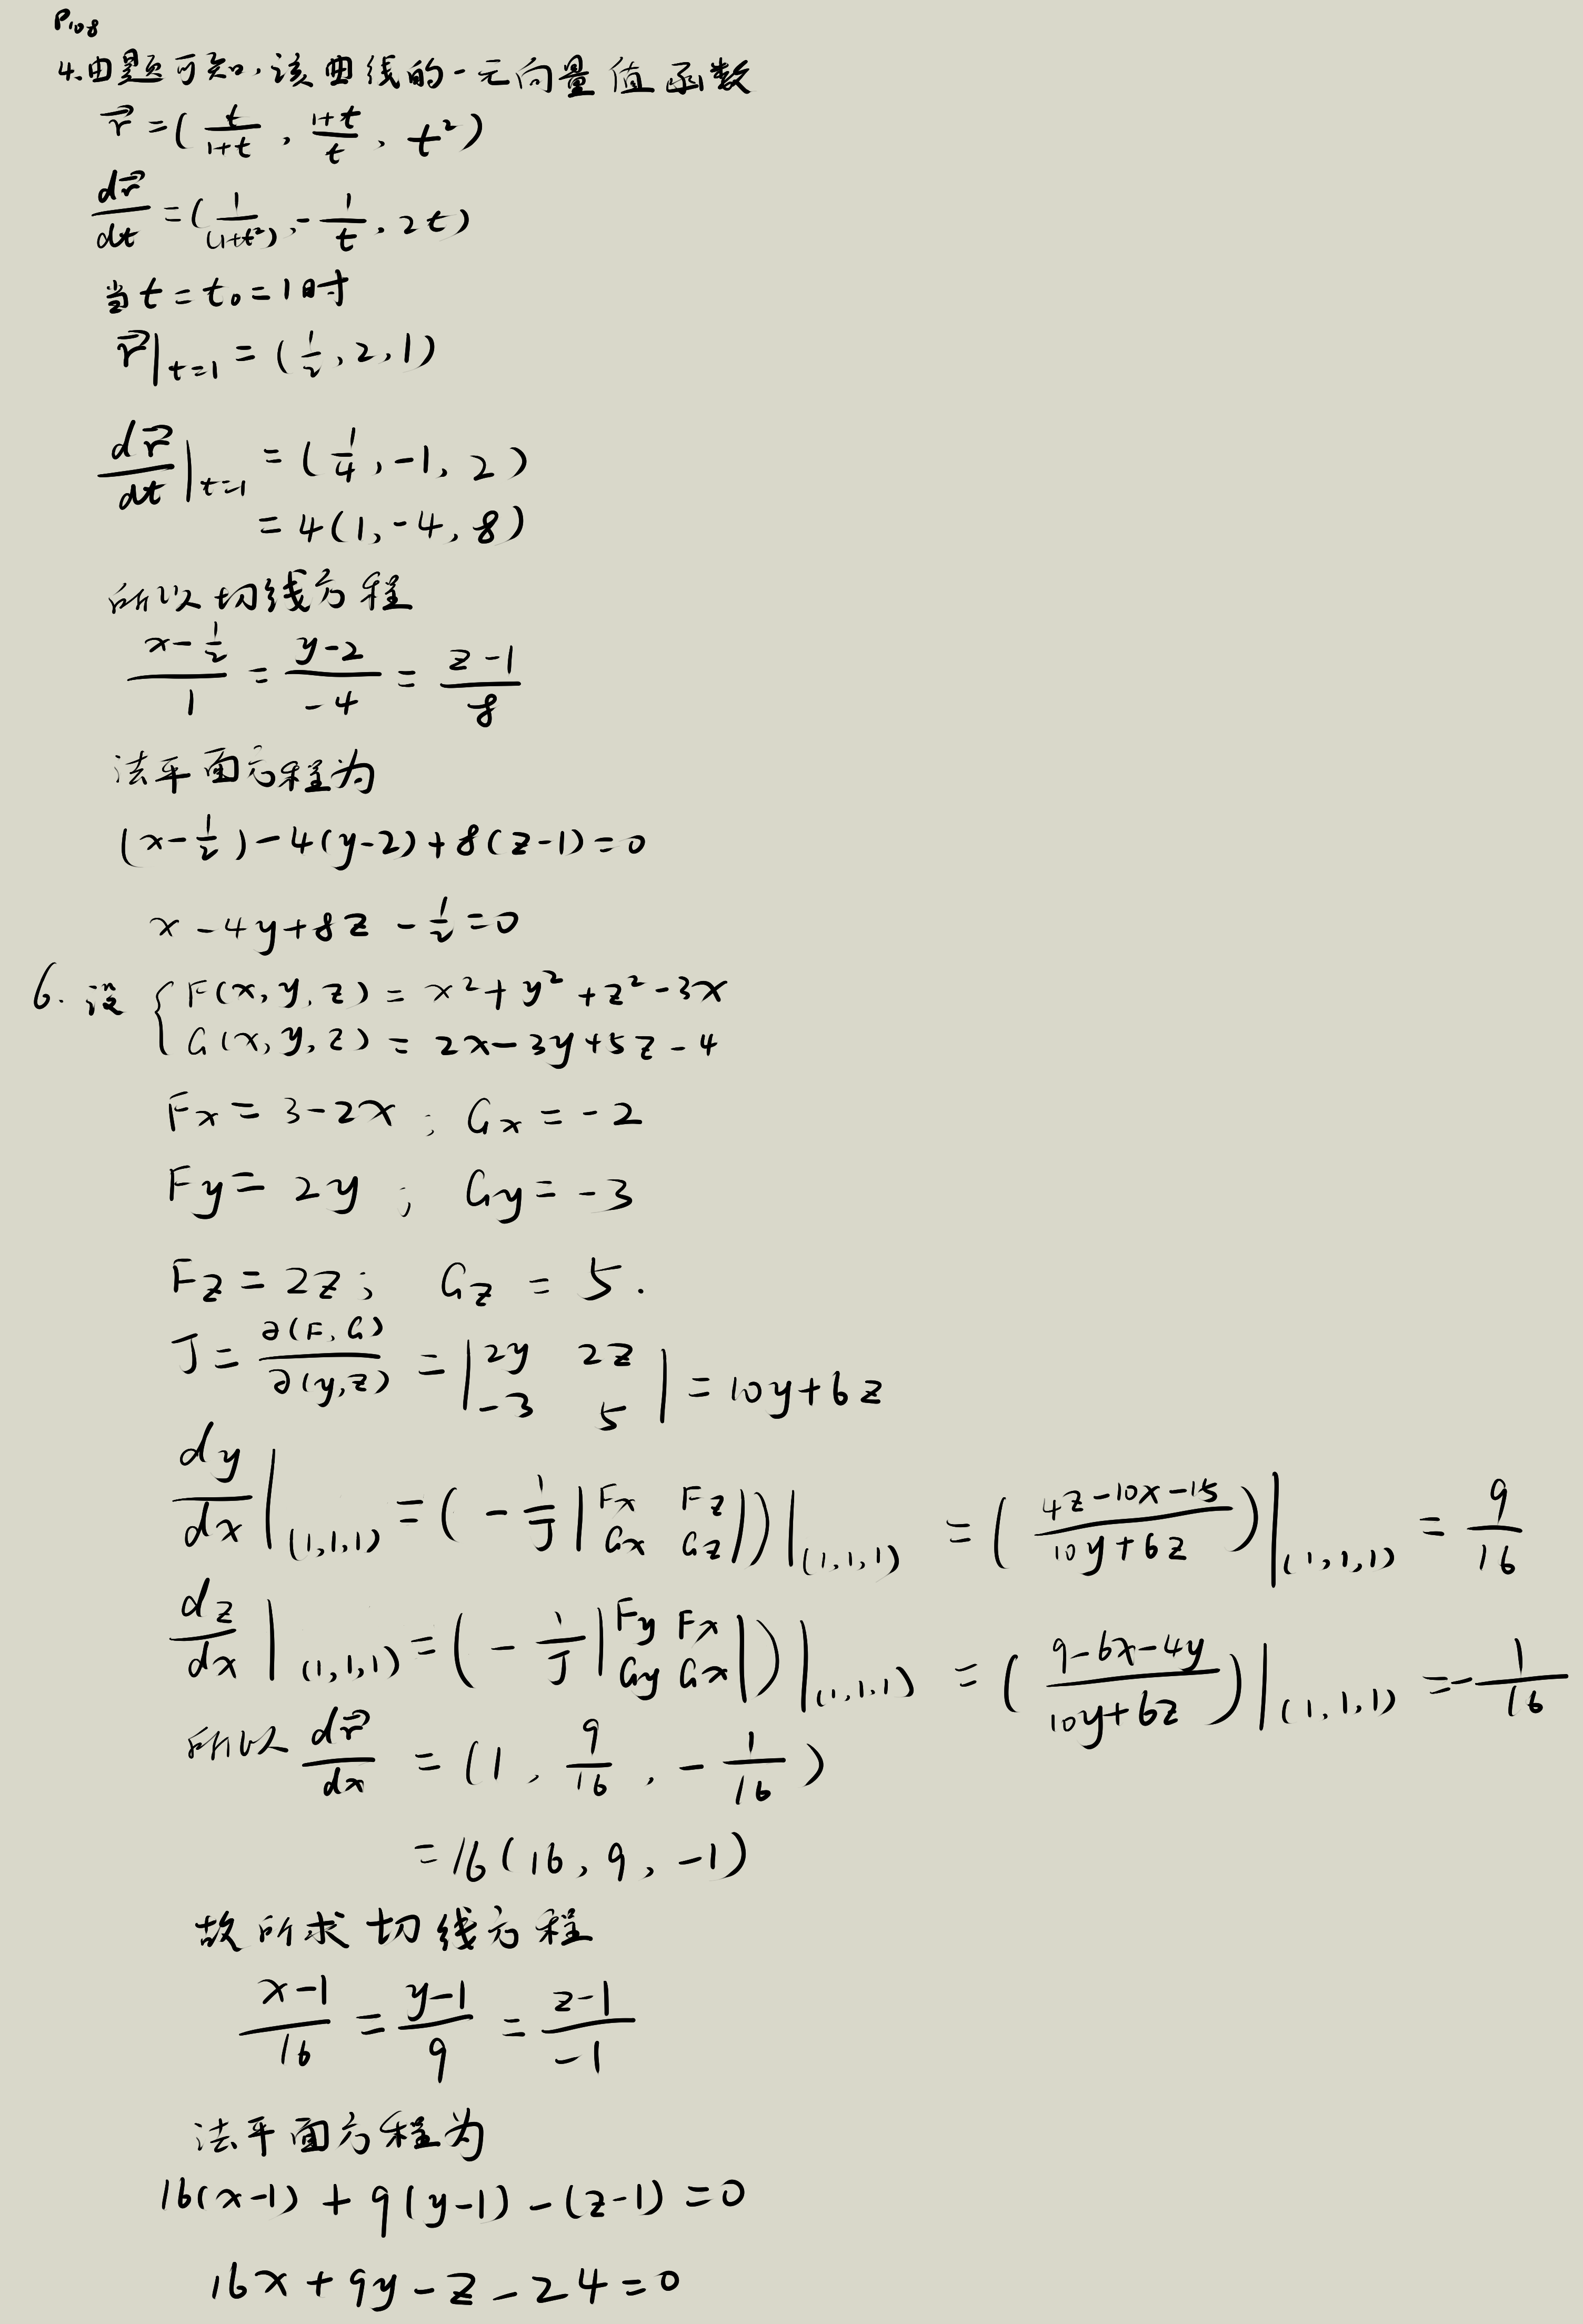 P108
4.由题可知,该曲线的一元向量值函数
r⃗ = (t/(1+t), (1+t)/t, t²)
dr⃗/dt = (1/(1+t²), -1/t, 2t)
当 t = t₀ = 1时
r⃗|t=1 = (1/2, 2, 1)
dr⃗/dt|t=1 = (1/4, -1, 2)
= 4(1, -4, 8)
所以切线方程
(x-1/2)/1 = (y-2)/-4 = (z-1)/8
法平面方程为
(x-1/2)-4(y-2)+8(z-1)=0
x-4y+8z-1/2=0
6. 设 { F(x,y,z) = x²+y²+z²-3x
G(x,y,z) = 2x-3y+5z-4
Fx = 3-2x ; Gx = -2
Fy = 2y ; Gy = -3
Fz = 2z ; Gz = 5.
J = ∂(F,G)/∂(y,z) = |2y 2z; -3 5| = 10y+6z
dy/dx|(1,1,1) = (-1/J |Fx Fz; Gx Gz|)|(1,1,1) = ((4z-10x-15)/(10y+6z))|(1,1,1) = 9/16
dz/dx|(1,1,1) = (-1/J |Fy Fx; Gy Gx|)|(1,1,1) = ((9-6x-4y)/(10y+6z))|(1,1,1) = -1/16
所以 dr⃗/dx = (1, 9/16, -1/16)
= 16(16, 9, -1)
故所求切线方程
(x-1)/16 = (y-1)/9 = (z-1)/-1
法平面方程为
16(x-1) + 9(y-1) - (z-1) = 0
16x + 9y - z - 24 = 0